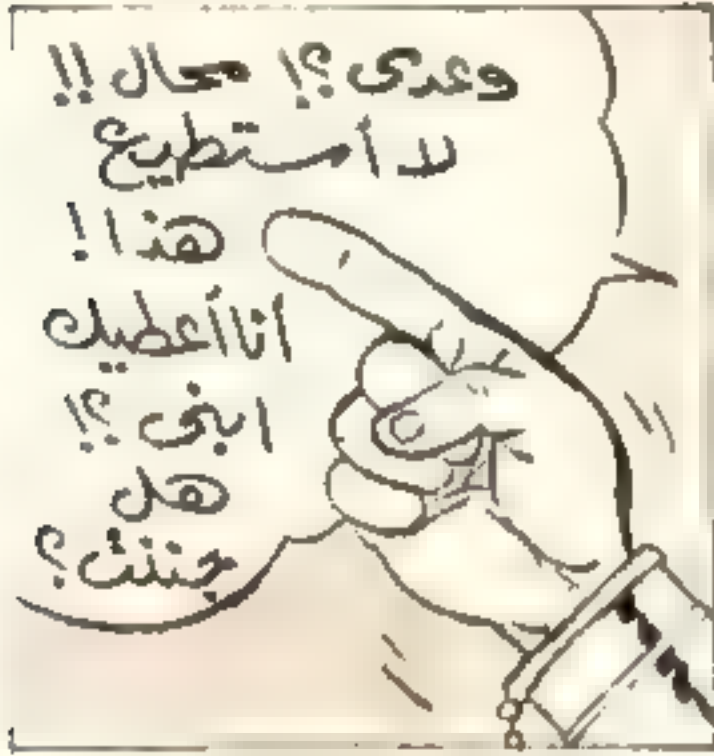 وعدى؟! محال!!
لا أستطيع
هذا!
انا أعطيك
ابنى؟!
هل
جننت؟